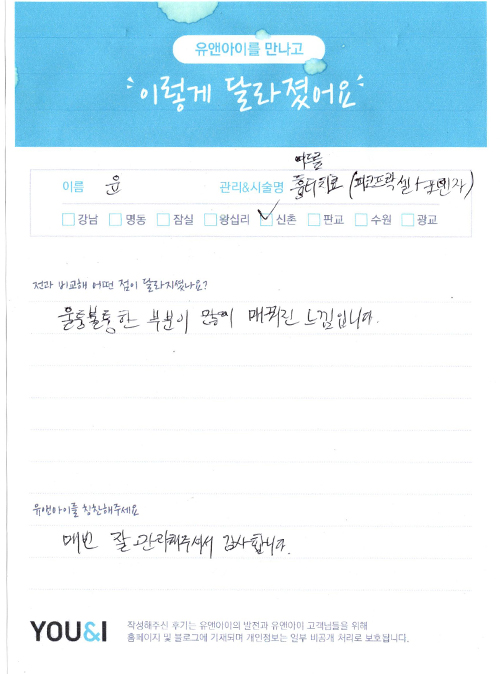 유앤아이를 만나고
이렇게 달라졌어요
여드름
이름 윤 관리&시술명 흉터치료 (피코프락셀+포텐자)
강남 명동 잠실 왕십리 신촌 판교 수원 광교
전과 비교해 어떤 점이 달라지셨나요?
울퉁불퉁한 부분이 많이 메꿔진 느낌입니다.
유앤아이를 칭찬해주세요
매번 잘 관리해주셔서 감사합니다.
YOU&I
작성해주신 후기는 유앤아이의 발전과 유앤아이 고객님들을 위해
홈페이지 및 블로그에 기재되며 개인정보는 일부 비공개 처리로 보호됩니다.